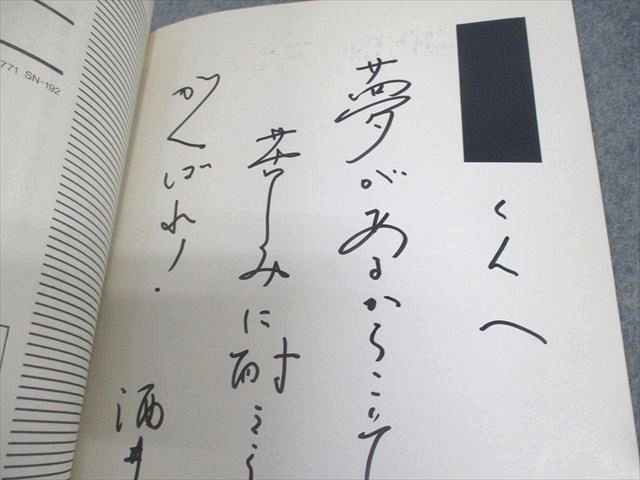 くんへ
夢があるからこそ
苦しみに耐える
がんばれ!
酒井
771 SN-192